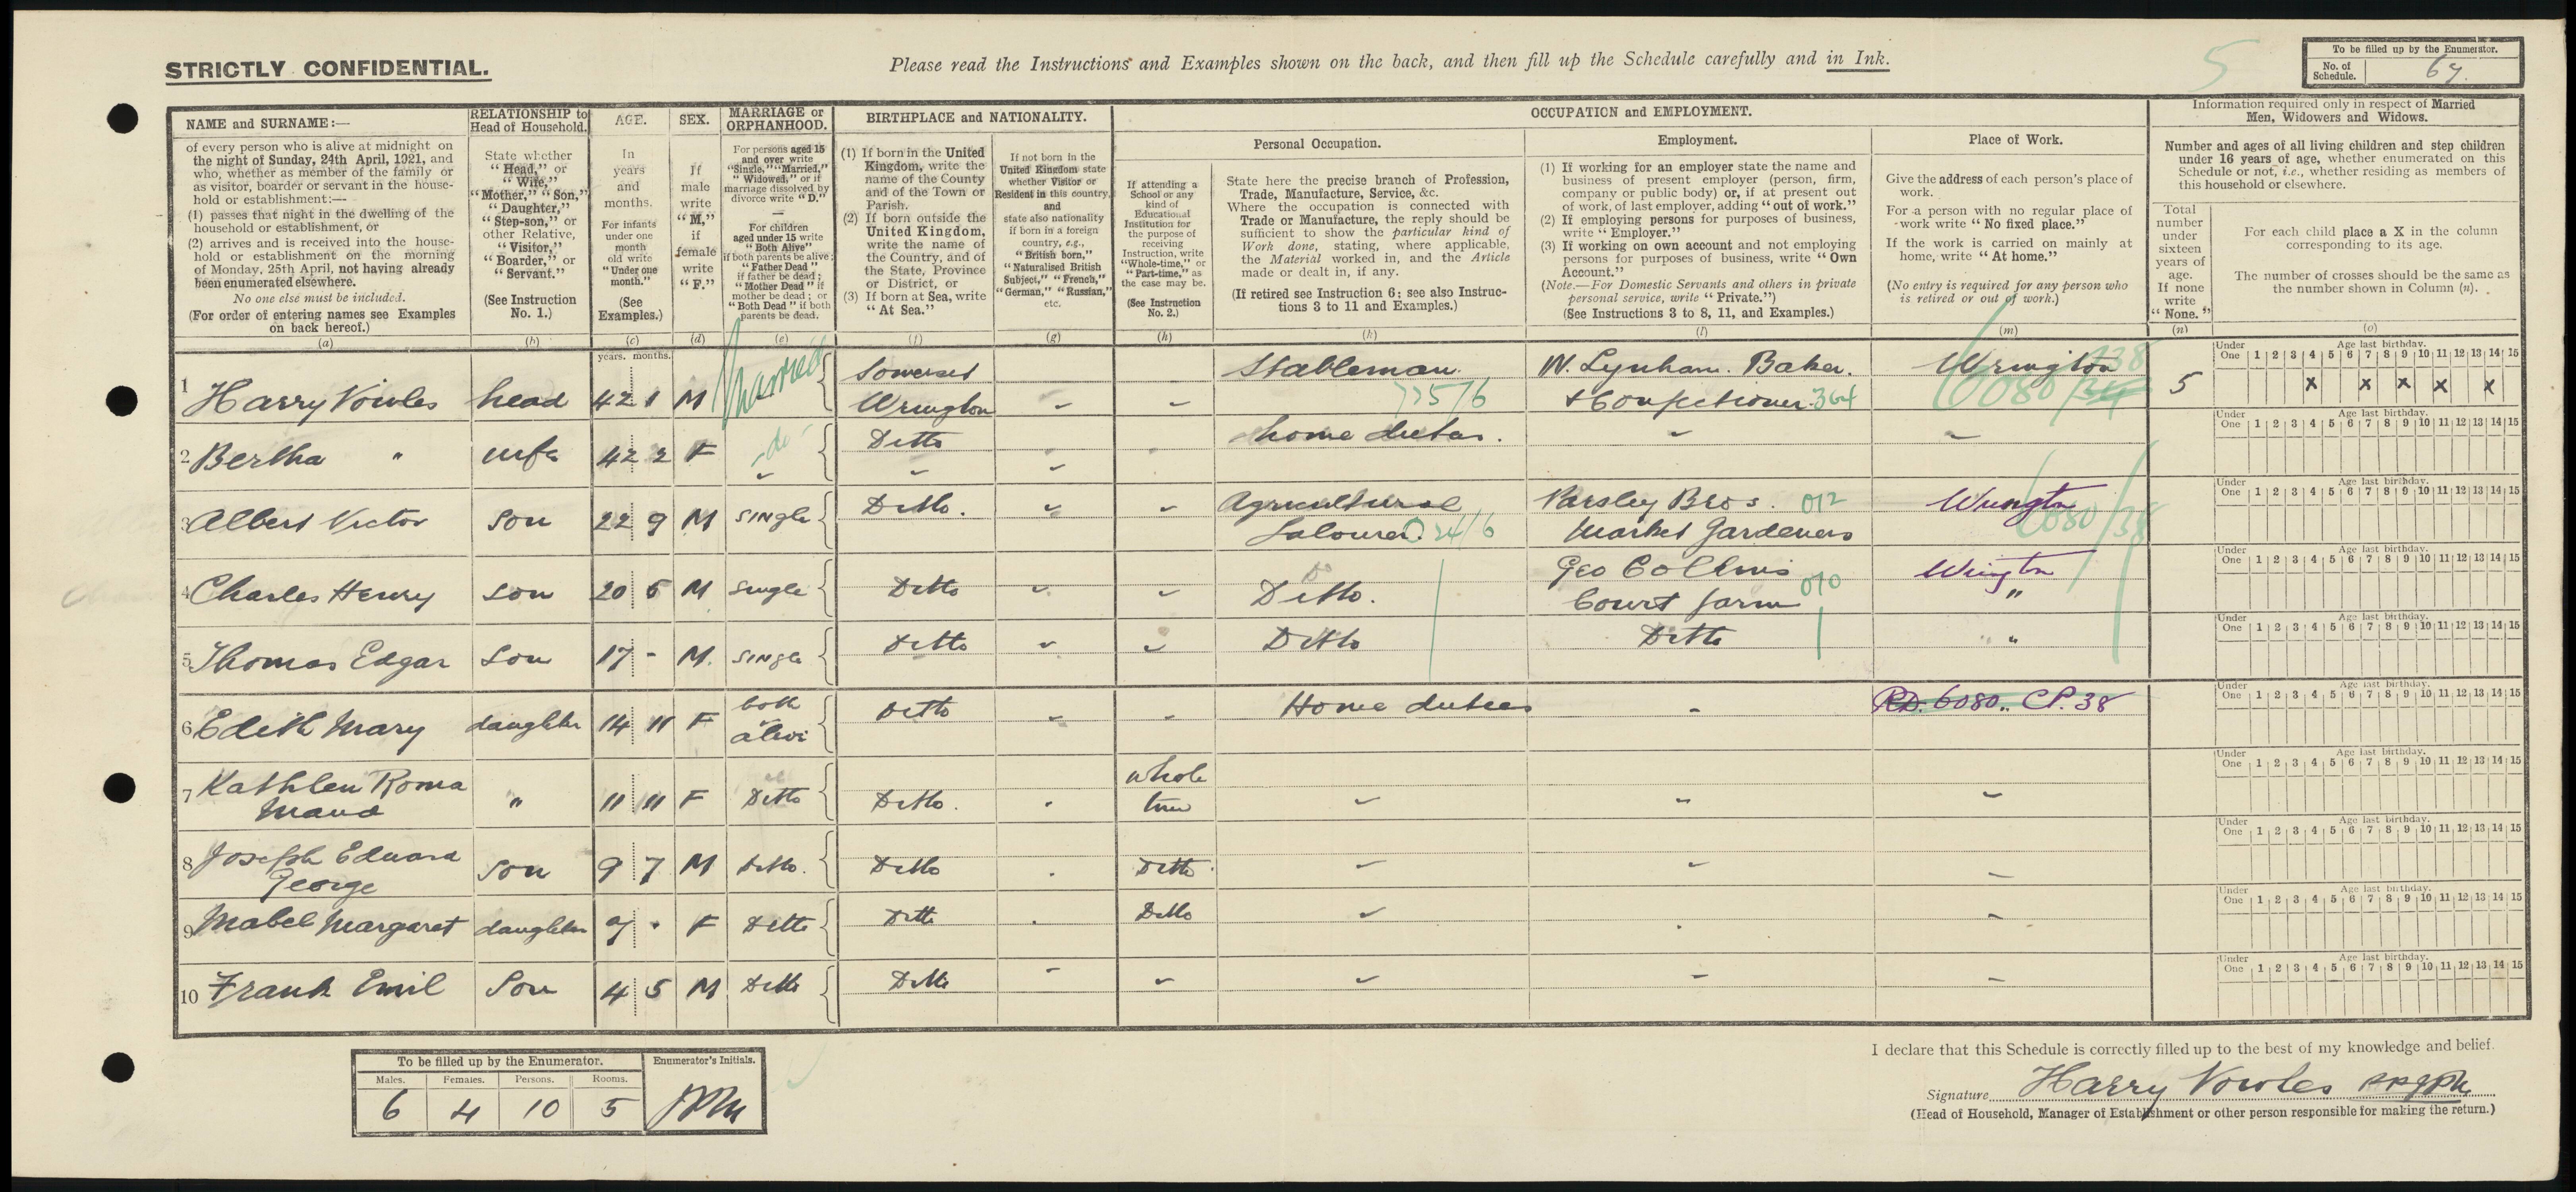 STRICTLY CONFIDENTIAL.
Please read the Instructions and Examples shown on the back, and then fill up the Schedule carefully and in Ink.
5
To be filled up by the Enumerator.
No. of Schedule. 67.
NAME and SURNAME:—
of every person who is alive at midnight on
the night of Sunday, 24th April, 1921, and
who, whether as member of the family or
as visitor, boarder or servant in the house-
hold or establishment:—
(1) passes that night in the dwelling of the
household or establishment, or
(2) arrives and is received into the house-
hold or establishment on the morning
of Monday, 25th April, not having already
been enumerated elsewhere.
No one else must be included.
(For order of entering names see Examples
on back hereof.)
(a)
RELATIONSHIP to
Head of Household.
State whether
"Head," or
"Wife,"
"Mother," "Son,"
"Daughter,"
"Step-son," or
other Relative,
"Visitor,"
"Boarder," or
"Servant."
(See Instruction
No. 1.)
(b)
AGE.
In
years
and
months.
For infants
under one
month
old write
"Under one
month."
(See
Examples.)
(c)
years. months.
SEX.
If
male
write
"M,"
if
female
write
"F."
(d)
MARRIAGE or
ORPHANHOOD.
For persons aged 15
and over write
"Single," "Married,"
"Widowed," or if
marriage dissolved by
divorce write "D."
—
For children
aged under 15 write
"Both Alive"
if both parents be alive;
"Father Dead"
if father be dead;
"Mother Dead" if
mother be dead; or
"Both Dead" if both
parents be dead.
(e)
BIRTHPLACE and NATIONALITY.
(1) If born in the United
Kingdom, write the
name of the County
and of the Town or
Parish.
(2) If born outside the
United Kingdom,
write the name of
the Country, and of
the State, Province
or District, or
(3) If born at Sea, write
"At Sea."
(f)
If not born in the
United Kingdom state
whether Visitor or
Resident in this country,
and
state also nationality
if born in a foreign
country, e.g.,
"British born,"
"Naturalised British
Subject," "French,"
"German," "Russian,"
etc.
(g)
OCCUPATION and EMPLOYMENT.
If attending a
School or any
kind of
Educational
Institution for
the purpose of
receiving
Instruction, write
"Whole-time," or
"Part-time," as
the case may be.
(See Instruction
No. 2.)
(h)
Personal Occupation.
State here the precise branch of Profession,
Trade, Manufacture, Service, &c.
Where the occupation is connected with
Trade or Manufacture, the reply should be
sufficient to show the particular kind of
Work done, stating, where applicable,
the Material worked in, and the Article
made or dealt in, if any.
(If retired see Instruction 6; see also Instruc-
tions 3 to 11 and Examples.)
(k)
Employment.
(1) If working for an employer state the name and
business of present employer (person, firm,
company or public body) or, if at present out
of work, of last employer, adding "out of work."
(2) If employing persons for purposes of business,
write "Employer."
(3) If working on own account and not employing
persons for purposes of business, write "Own
Account."
(Note.—For Domestic Servants and others in private
personal service, write "Private.")
(See Instructions 3 to 8, 11, and Examples.)
(l)
Place of Work.
Give the address of each person's place of
work.
For a person with no regular place of
work write "No fixed place."
If the work is carried on mainly at
home, write "At home."
(No entry is required for any person who
is retired or out of work.)
(m)
Information required only in respect of Married
Men, Widowers and Widows.
Number and ages of all living children and step children
under 16 years of age, whether enumerated on this
Schedule or not, i.e., whether residing as members of
this household or elsewhere.
Total
number
under
sixteen
years of
age.
If none
write
"None."
(n)
For each child place a X in the column
corresponding to its age.
The number of crosses should be the same as
the number shown in Column (n).
(o)
1 Harry Vowles head 42 1 M Married Somerset Wrington - - Stableman. 775/6 W. Lynham. Baker. & Confectioner. 364 Wrington 6080/38 5 x x x x x
Under One Age last birthday. 1 2 3 4 5 6 7 8 9 10 11 12 13 14 15
2 Bertha " wife 42 2 F -do- Ditto home duties. - -
Under One Age last birthday. 1 2 3 4 5 6 7 8 9 10 11 12 13 14 15
3 Albert Victor Son 22 9 M Single Ditto. Agricultural Labourer. 024/6 Parsley Bros. 012 Market Gardeners Wrington 6080/38
Under One Age last birthday. 1 2 3 4 5 6 7 8 9 10 11 12 13 14 15
4 Charles Henry Son 20 5 M Single Ditto Do Ditto. Geo Collins Court farm 010 Wrington "
Under One Age last birthday. 1 2 3 4 5 6 7 8 9 10 11 12 13 14 15
5 Thomas Edgar Son 17 - M. Single Ditto Ditto Ditto "
Under One Age last birthday. 1 2 3 4 5 6 7 8 9 10 11 12 13 14 15
6 Edith Mary daughter 14 11 F both alive Ditto - - Home duties - RD. 6080.. CP. 38
Under One Age last birthday. 1 2 3 4 5 6 7 8 9 10 11 12 13 14 15
7 Kathlen Roma Maud " 11 11 F Ditto Ditto. whole time
Under One Age last birthday. 1 2 3 4 5 6 7 8 9 10 11 12 13 14 15
8 Joseph Edward George Son 9 7 M Ditto. Ditto Ditto
Under One Age last birthday. 1 2 3 4 5 6 7 8 9 10 11 12 13 14 15
9 Mabel Margaret daughter 7 - F Ditto Ditto Ditto
Under One Age last birthday. 1 2 3 4 5 6 7 8 9 10 11 12 13 14 15
10 Frank Emil Son 4 5 M Ditto Ditto
Under One Age last birthday. 1 2 3 4 5 6 7 8 9 10 11 12 13 14 15
To be filled up by the Enumerator.
Males. Females. Persons. Rooms.
6 4 10 5
Enumerator's Initials.
I declare that this Schedule is correctly filled up to the best of my knowledge and belief.
Signature Harry Vowles
(Head of Household, Manager of Establishment or other person responsible for making the return.)